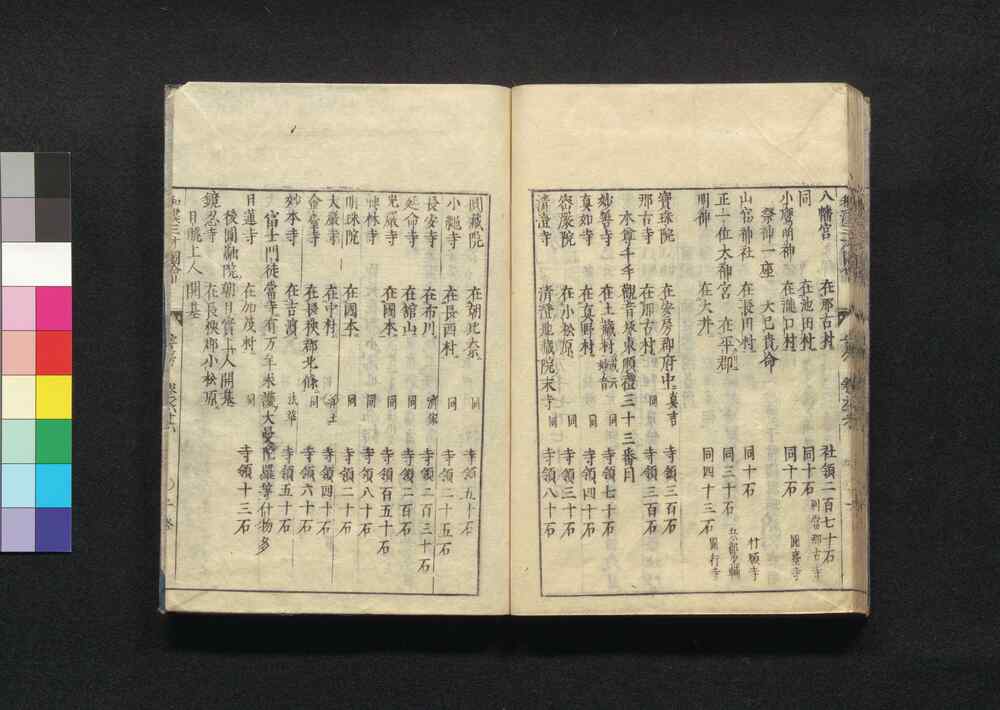 八幡宮 在那古村 社領二百七十石
同 在池田村 同十石 別當那古寺
小鷹明神 在瀧口村 同十石 圓臺寺
祭神一座 大己貴命
山宮神社 在長田村 同十石
正一位大神宮 在平郡 同三十石
明神 在大井 同四十三石 圓行寺
寶珠院 在安房郡府中 眞言 寺領三百石
那古寺 在那古村 同 寺領三百石
本尊千手觀音坂東順禮三十三番目
妙善寺 在土藏村 同 寺領七十石
眞如寺 在眞野村 同 寺領四十石
密嚴院 在小松原 同 寺領三十石
清澄寺 清澄地藏院末寺 同 寺領八十石
圓藏院 在朝比奈 同 寺領五十石
小松寺 在長西村 同 寺領二十五石
長安寺 在布川 濟家 寺領二百三十石
延命寺 在舘山 同 寺領二百石
光嚴寺 在國本 同 寺領百五十石
同 寺領八十石
明珠院 在國本 同 寺領二十石
大嚴寺 在中村 淨土 寺領四十石
金臺寺 在長狹郡北條 同 寺領六十石
妙本寺 在吉濱 法華 寺領五十石
富士門徒當寺有万年末 大曼陀羅等什物多
日蓮寺 在加茂村 同 寺領十三石
後圓融院朝日賞上人開基
鏡忍寺 在長狹郡小松原
日曉上人開基
和漢三才圖會